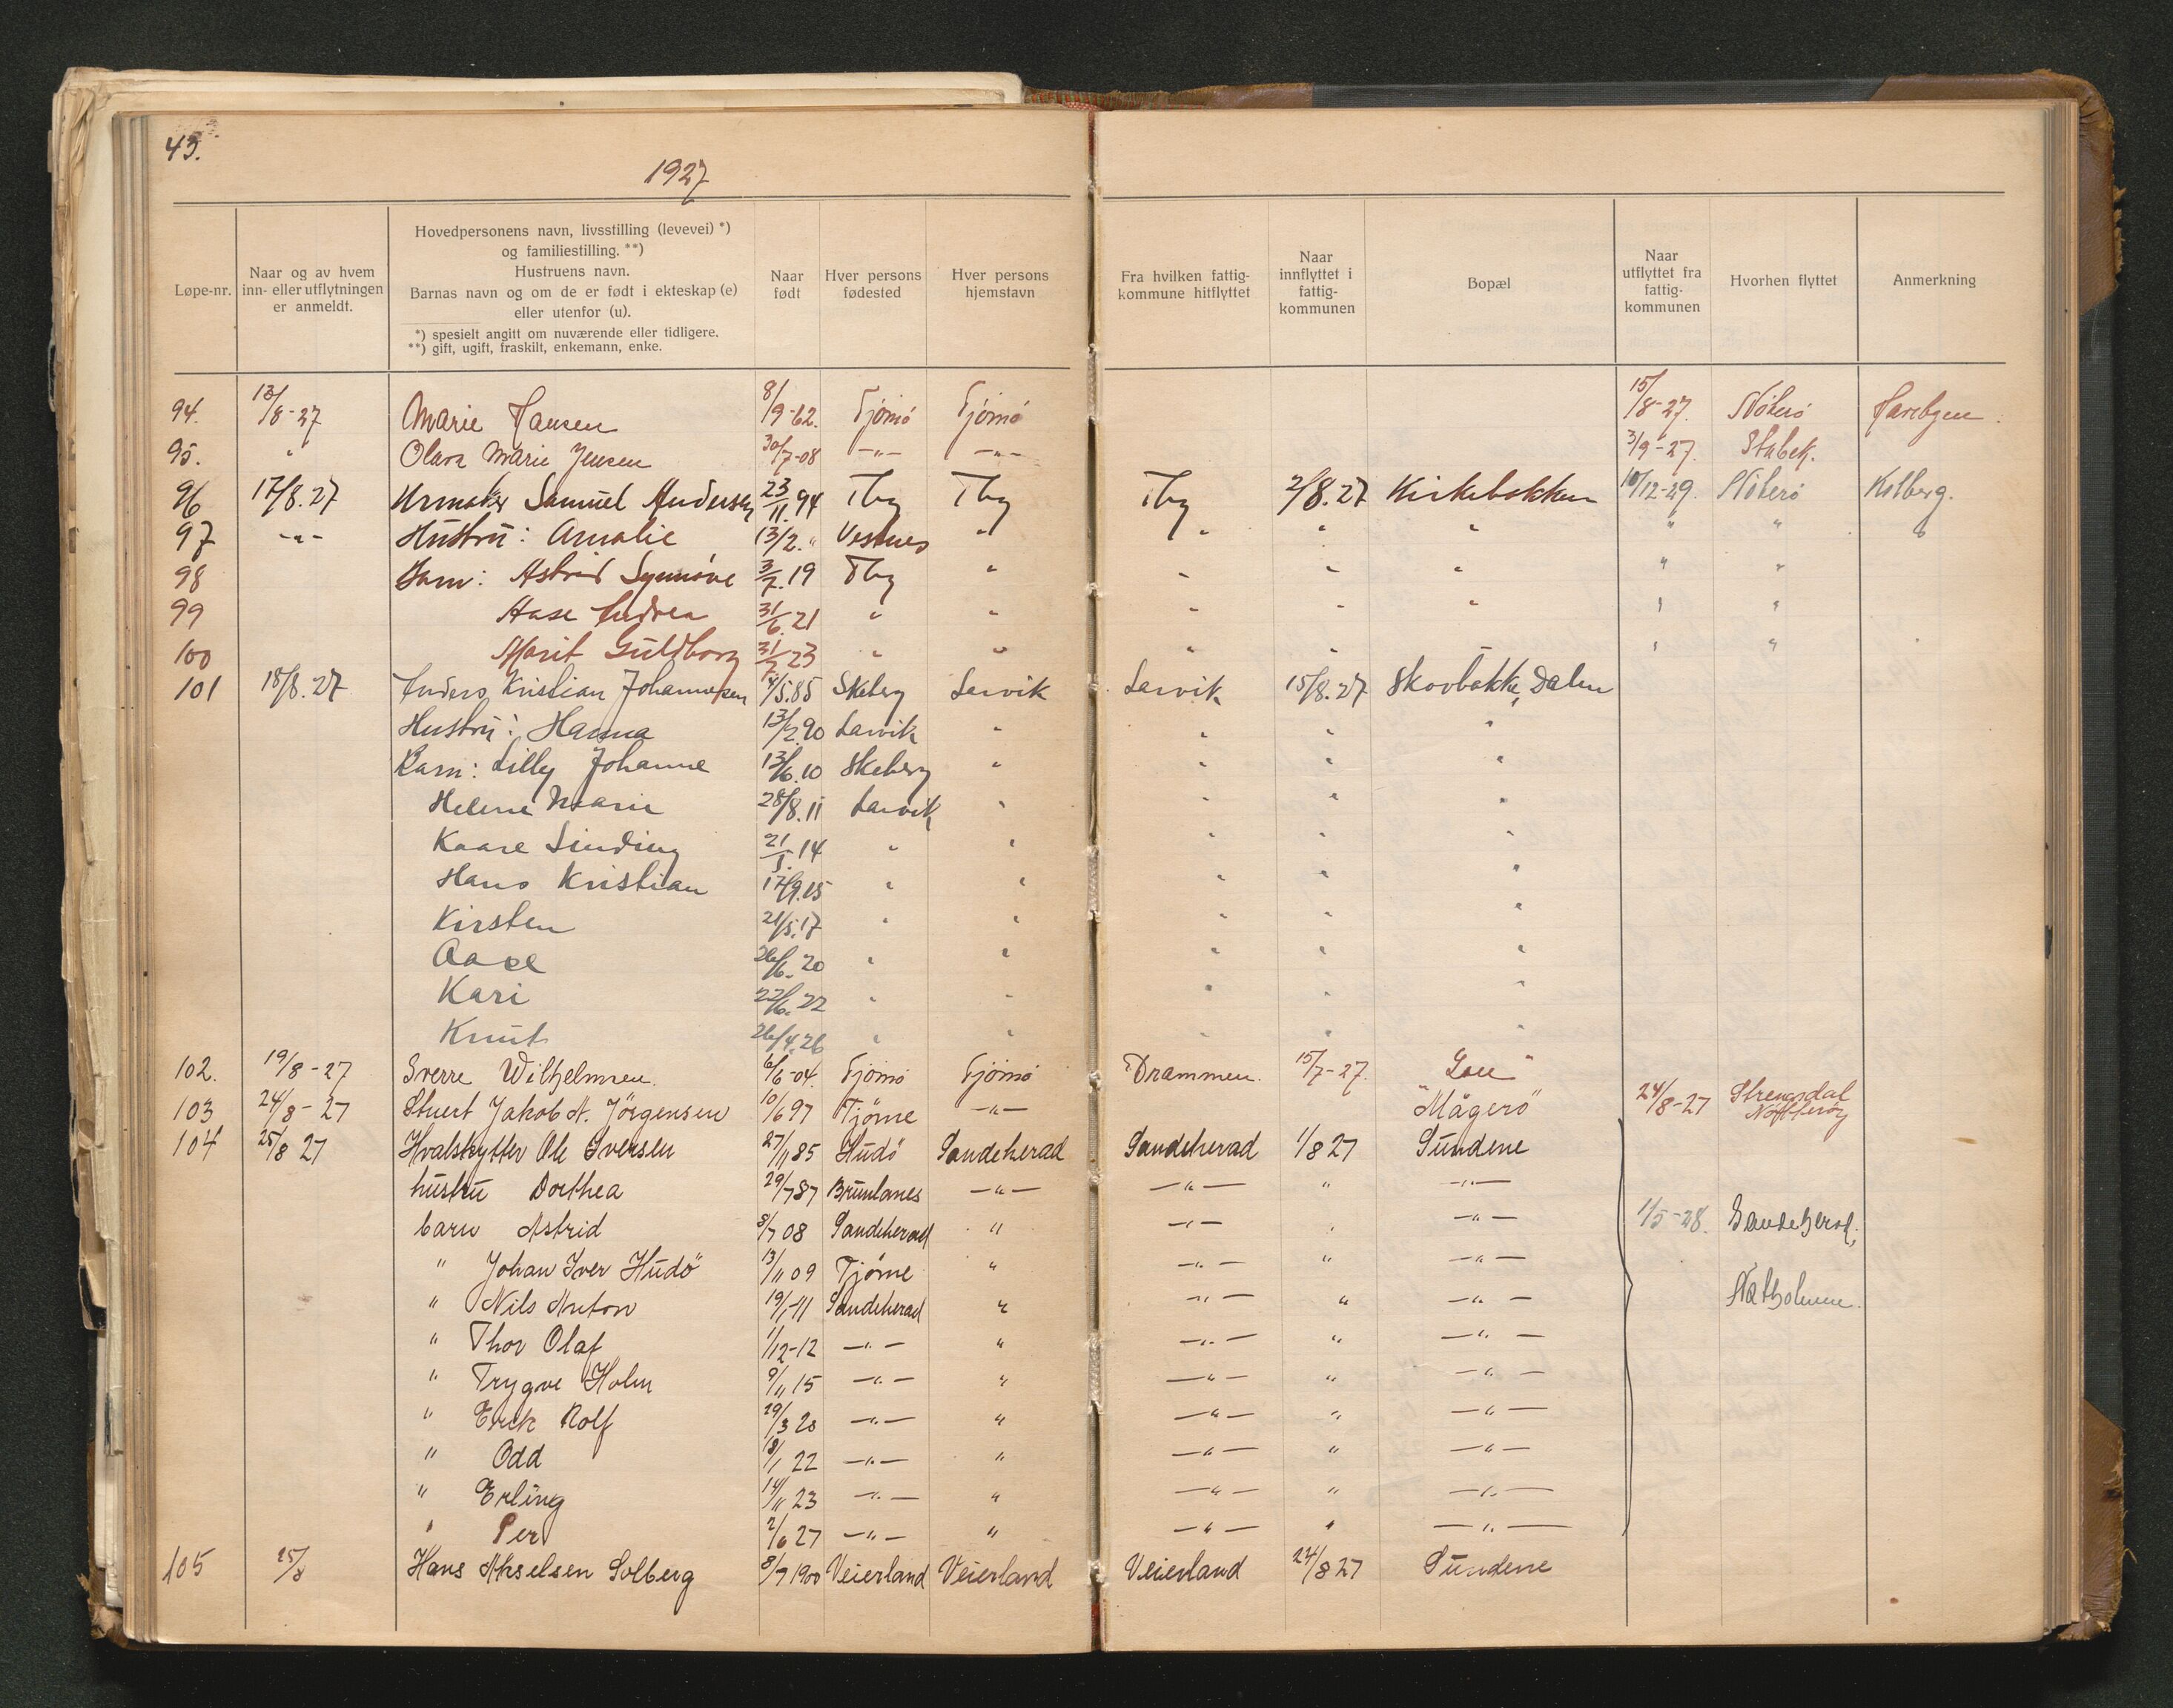 45.
1927
Løpe-nr.
Naar og av hvem
inn- eller utflytningen
er anmeldt.
Hovedpersonens navn, livsstilling (levevei) *)
og familiestilling. **)
Hustruens navn.
Barnas navn og om de er født i ekteskap (e)
eller utenfor (u).
*) spesielt angitt om nuværende eller tidligere.
**) gift, ugift, fraskilt, enkemann, enke.
Naar
født
Hver persons
fødested
Hver persons
hjemstavn
Fra hvilken fattig-
kommune hitflyttet
Naar
innflyttet i
fattig-
kommunen
Bopæl
Naar
utflyttet fra
fattig-
kommunen
Hvorhen flyttet
Anmerkning
94. 13/8-27 Marie Hansen 8/9-62. Tjømø Tjømø 15/8-27. Nøterø
95. " Olava Marie Jensen 30/7-08 -"- -"- 3/9-27. Stabek.
96 17/8.27 Urmaker Samuel Andersen 23/11.94 Tbg Tbg Tbg 2/8.27 Kirkebakken 10/12-29. Nøterø Kolberg.
97 -"- Hustru: Amalie 13/2. " Vestnes " " " " " "
98 Barn: Astrid Synnøve 3/7.19 Tbg " " " " " "
99 Aase Andrea 31/6.21 " " " " " " "
100 Marit Guldborg 31/7.23 " " " " " " "
101 18/8.27 Anders Kristian Johannesen /5.85 Skeberg Larvik Larvik 15/8.27 Skovbakke, Dalen
Hustru: Hanna 13/2.90 Larvik " " " "
Barn: Lilly Johanne 13/6.10 Skeberg " " " "
Helene Marie 28/8.11 Larvik " " " "
Kaare Sinding 21/1.14 " " " " "
Hans Kristian 17/9.15 " " " " "
Kirsten 21/5.17 " " " " "
Aase 26/6.20 " " " " "
Kari 22/6.22 " " " " "
Knut 26/4.26 " " " " "
102. 19/8-27 Sverre Wilhelmsen. 6/6-04. Tjømø Tjømø Drammen. 15/7-27.
103 24/8-27 Stuert Jakob A. Jörgensen 10/6 97 Tjöme -"- "Mågerö" 24/8-27 Strengsdal Nötteröy
104 25/8 27 Hvalskytter Ole Iversen 27/11 85 Hudö Sandeherad Sandeherad 1/8 27 Sundene
hustru Dorthea 29/7 87 Brunlanes -"- -"- " -"-
barn Astrid 8/7 08 Sandeherad " -"- " -"- 1/5-28. Sandeherad,
" Johan Iver Hudö 13/11 09 Tjöme " -"- " -"-
" Nils Anton 19/1-11 Sandeherad " -"- " -"- Natholmen.
" Thor Olaf 1/12-12 -"- " -"- " -"-
" Trygve Holm 9/11 15 -"- " -"- " -"-
" Erik Rolf 29/3 20 -"- " -"- " -"-
" Odd 18/1 22 -"- " -"- " -"-
" Erling 14/11 23 -"- " -"- " -"-
" Per 2/6 27 -"- " -"- " -"-
105 25/8 Hans Akselsen Solberg 8/7 1900 Veierland Veierland Veierland 24/8 27 Sundene